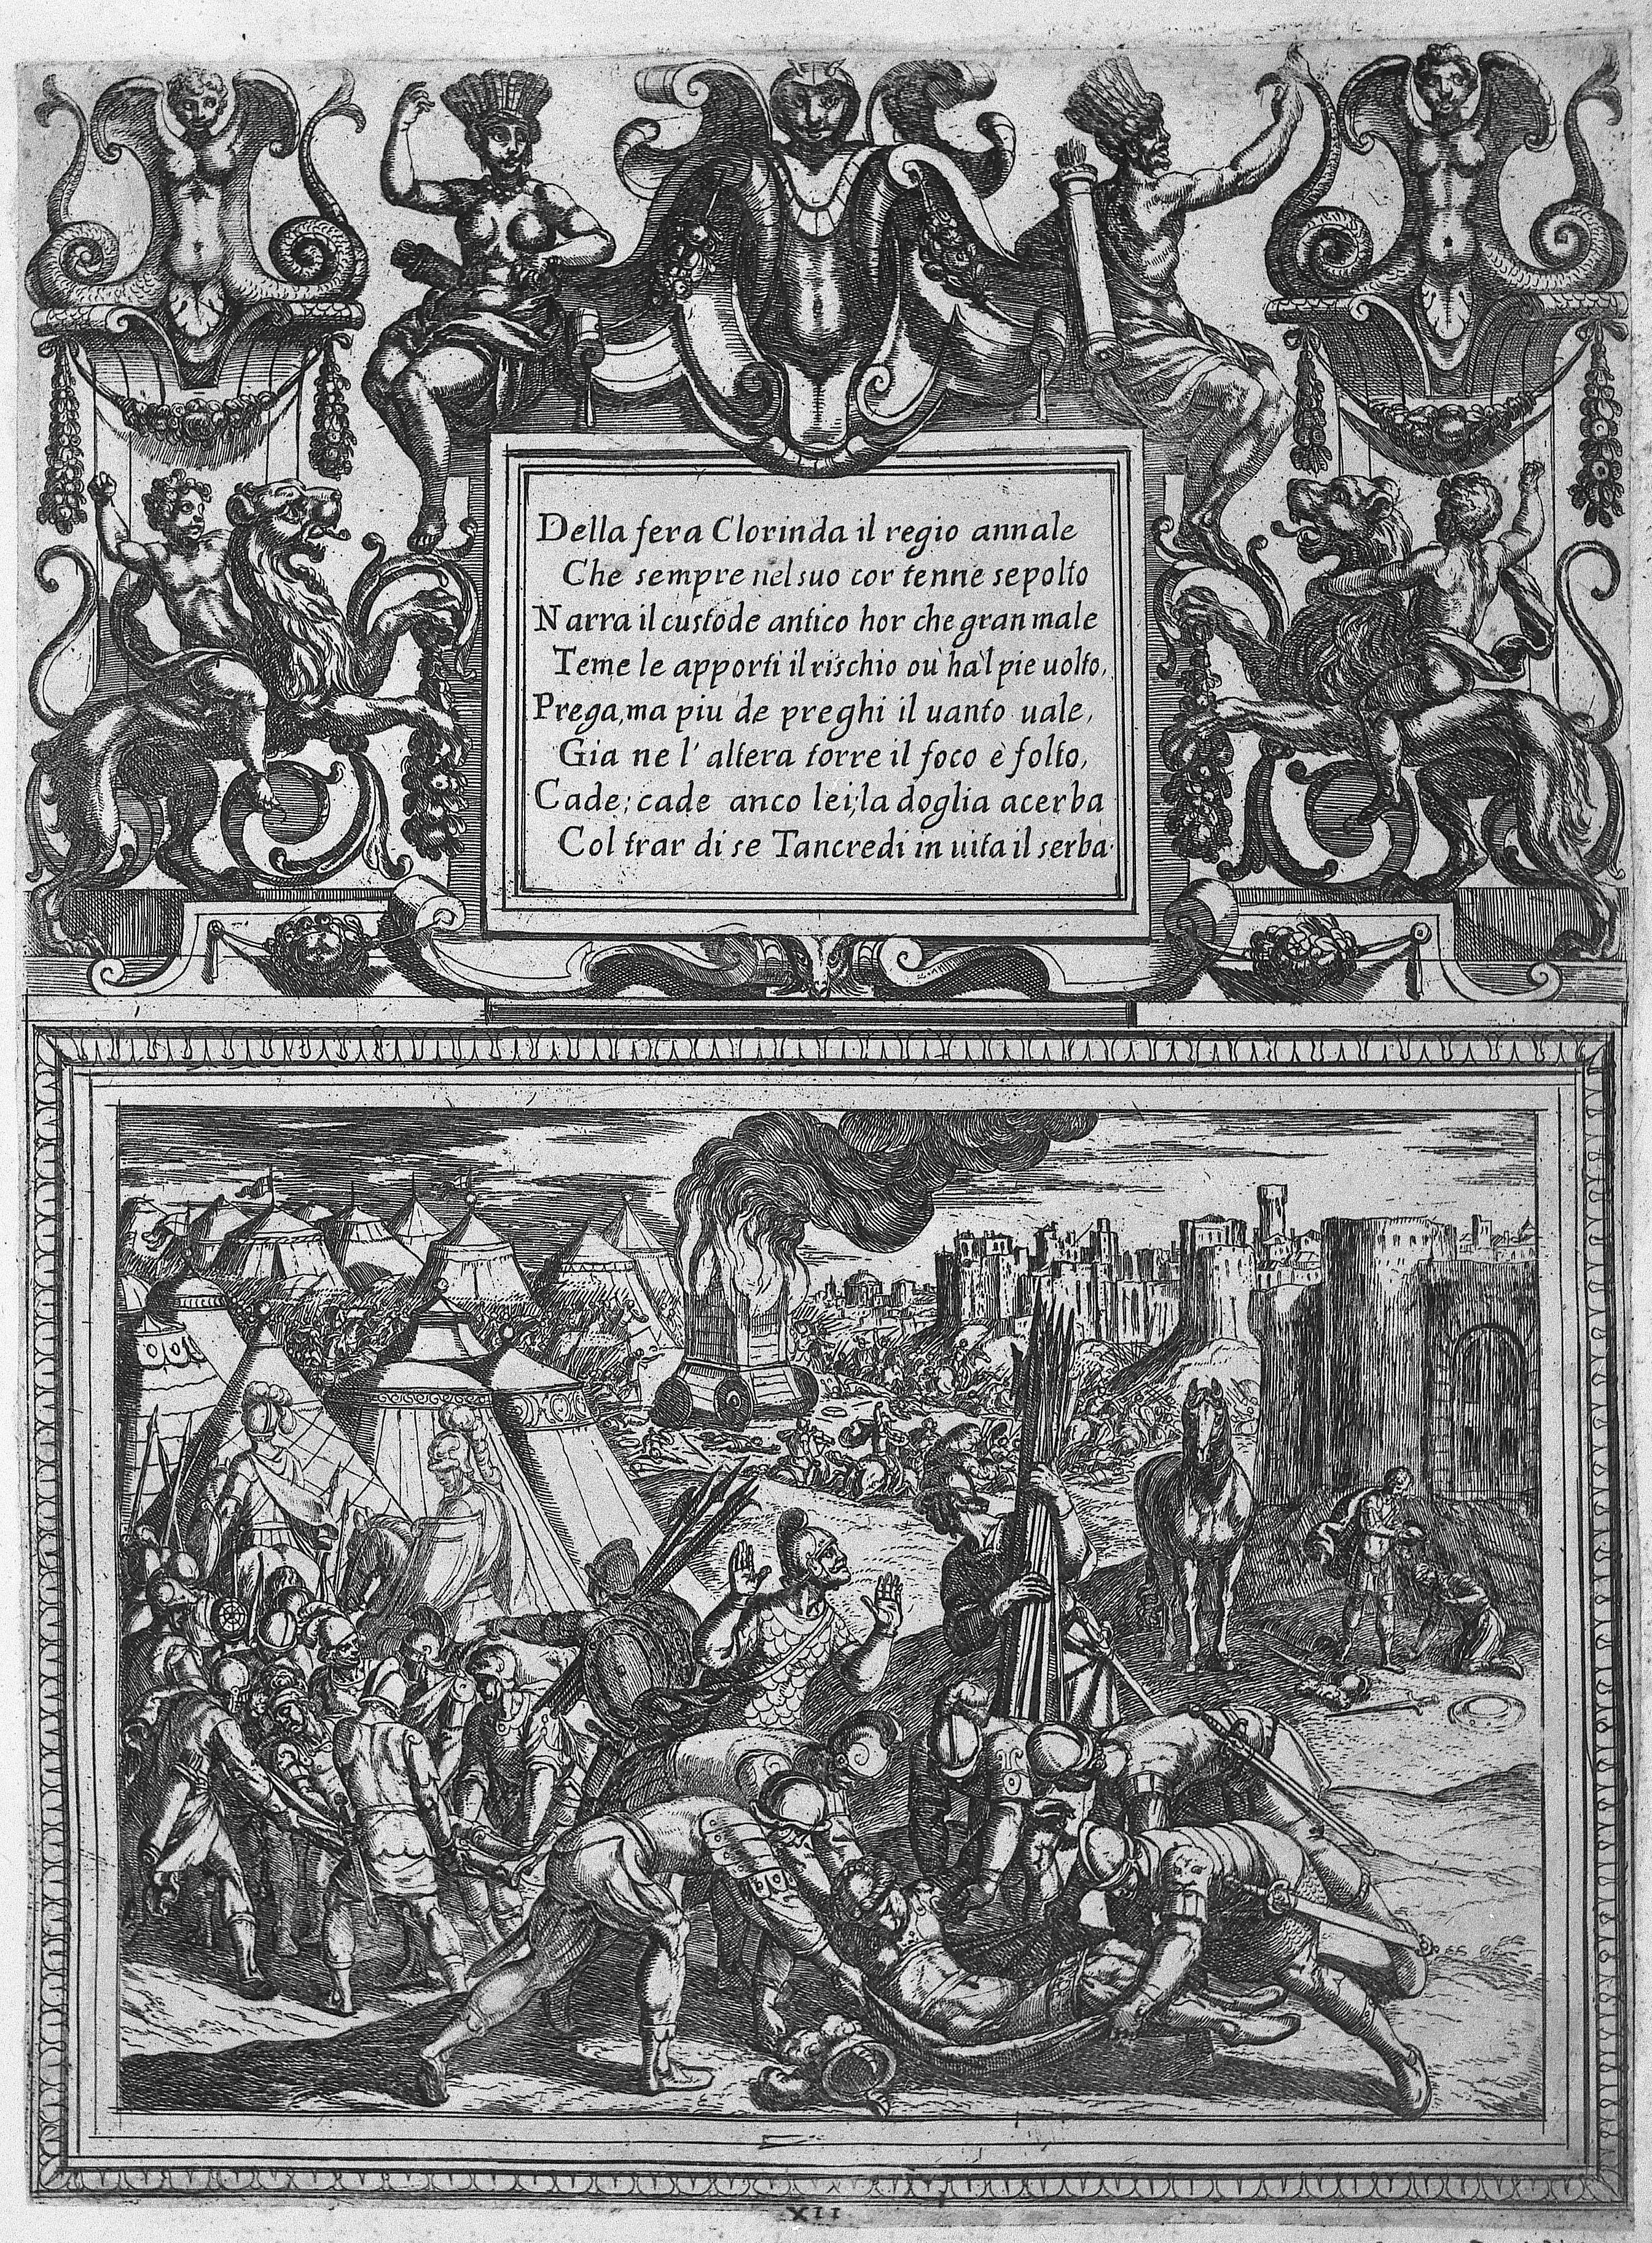 Della fera Clorinda il regio annale
Che sempre nel suo cor tenne sepolto
Narra il custode antico hor che gran male
Teme le apporti il rischio ou' ha'l pie uolto,
Prega, ma piu de preghi il uanto uale,
Gia ne l'altera torre il foco è folto,
Cade; cade anco lei; la doglia acerba
Col trar di se Tancredi in uita il serba.
XII